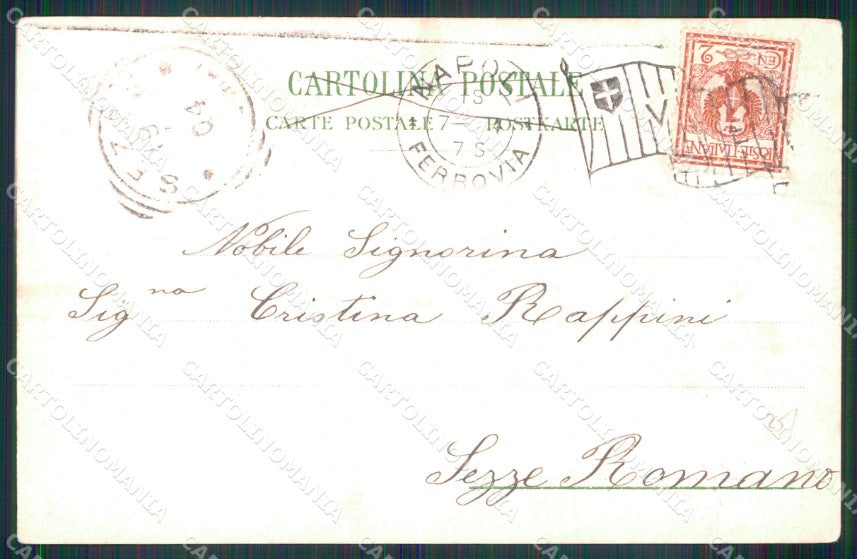 CARTOLINA POSTALE
CARTE POSTALE — POSTKARTE
NAPOLI
7 S
FERROVIA
V
2
CEN
POSTE ITALIANE
SEZZE
Nobile Signorina
Sig na Cristina Rappini
25
Sezze Romano
CARTOLINOMANIA